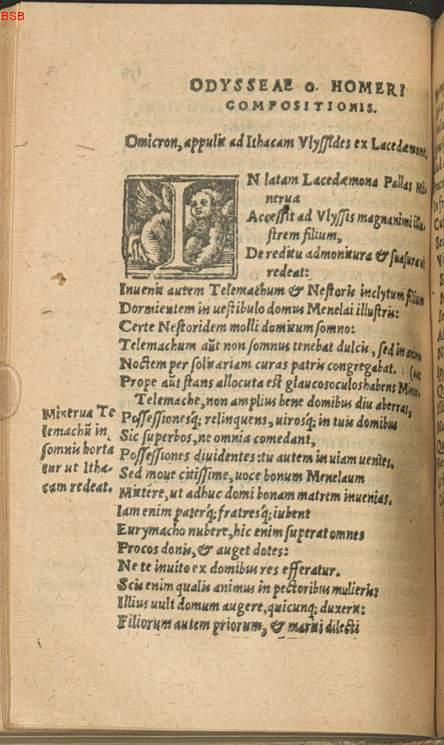 BSB
ODYSSEAE O. HOMERI
COMPOSITIONIS.
Omicron, appulit ad Ithacam Vlyssides ex Lacedæmone.
IN latam Lacedæmona Pallas Mi-
nerua
Accessit ad Vlyssis magnanimi illu-
strem filium,
De reditu admonitura & suasura ut
redeat:
Inuenit autem Telemachum & Nestoris inclytum filium
Dormientem in uestibulo domus Menelai illustris:
Certe Nestoridem molli domitum somno:
Telemachum aūt non somnus tenebat dulcis, sed in animo
Noctem per solitariam curas patris congregabat.
Prope aūt stans allocuta est glaucosoculos habens
Telemache, non amplius bene domibus diu aberras,
Possessionesq; relinquens, uirosq; in tuis domibus
Sic superbos, ne omnia comedant,
Possessiones diuidentes: tu autem in uiam uenies.
Minerua Te
lemachū in
somnis horta
tur ut Itha-
cam redeat.
Sed moue citissime, uoce bonum Menelaum
Mittere, ut adhuc domi bonam matrem inuenias.
Iam enim paterq; fratresq; iubent
Eurymacho nubere, hic enim superat omnes
Procos donis, & auget dotes:
Ne te inuito ex domibus res efferatur.
Scis enim qualis animus in pectoribus mulieris:
Illius uult domum augere, quicunq; duxerit:
Filiorum autem priorum, & mariti dilecti